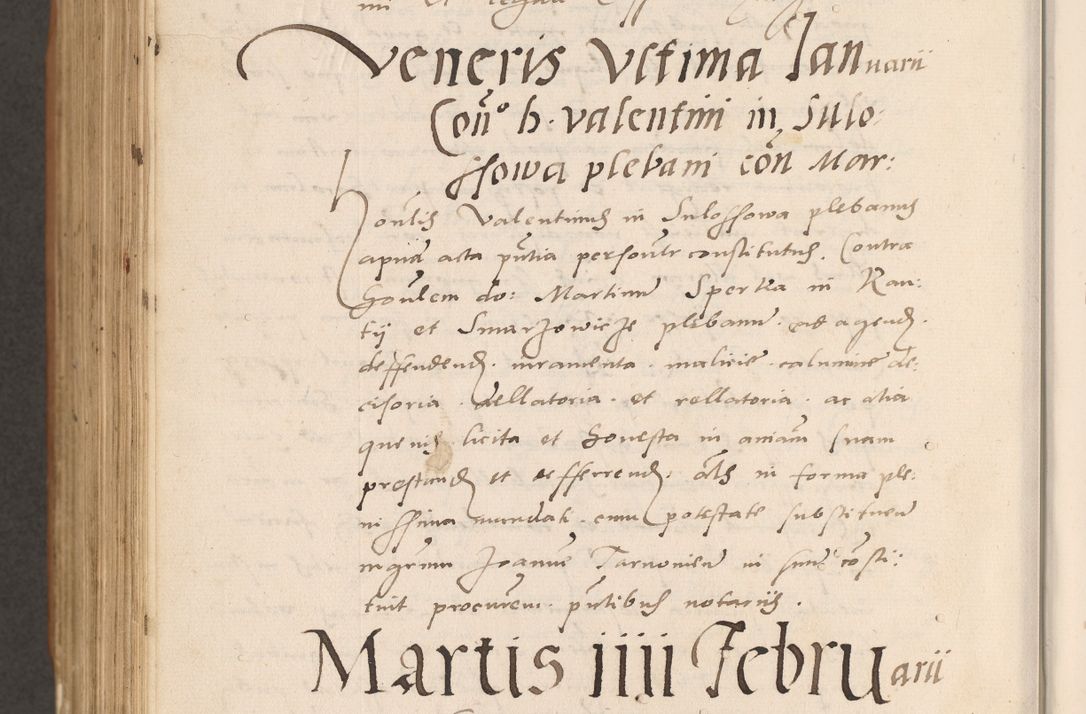 Veneris Ultima Januarii
Con̄o h. valentini in Sulo-
ssowa plebani cōn Mar:
honūlis Valentinus in Sulossowa plebanus
apud acta pn̄tia personr̄ constitutus, Contra
honūlem do: Martinū Sperka in Ran:
tij et Smarzowicze plebanū. ad agend.
deffendend. iuramenta. malicie. calumnie de:
cisoria. dellatoria. et rellatoria. ac alia
quevis licita et honesta in aniam suam
prestand et defferrend. Als in forma ple:
nissima mandati. cum potestate substituen
mgr̄um Joannē Tarnovien in suū cōsti:
tuit procurem. pn̄tibus notariis.
Martis iiii Februarii